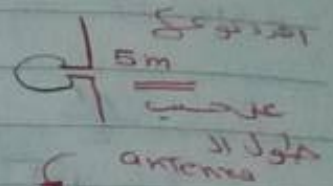 5m
على حسب
طول ال
antenna